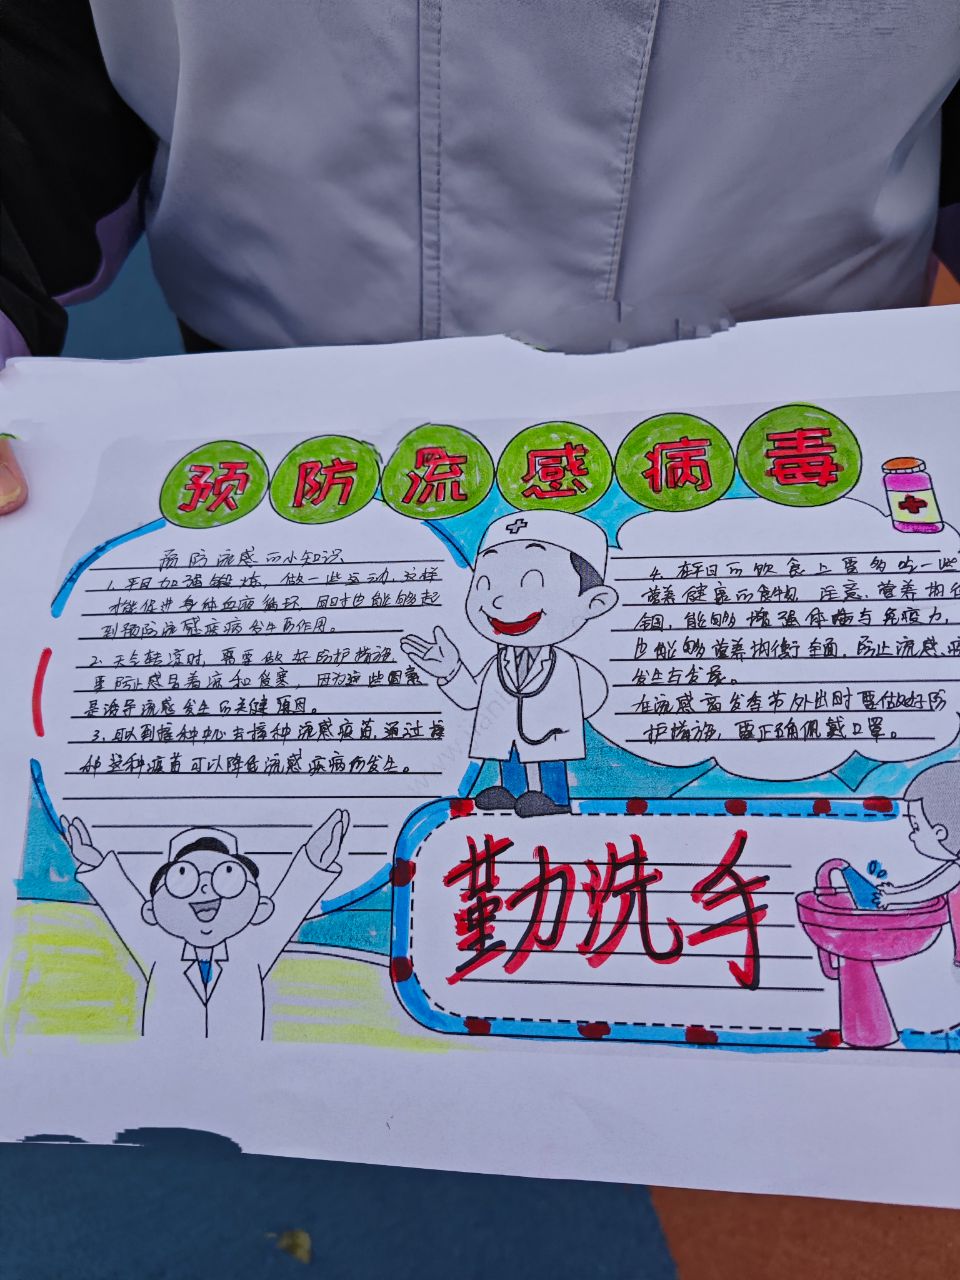 预防流感病毒
预防流感的小知识
1.平日加强锻炼，做一些运动，这样
才能促进身体血液循环，同时也能够起
到预防流感疾病发生的作用。
2.天气转凉时，需要做好防护措施，
要防止感冒着凉和伤寒，因为这些因素
是诱导流感发生的关键原因。
3.可以到接种中心去接种流感疫苗，通过接
种某种疫苗可以降低流感疾病的发生。
4.在平日的饮食上要多吃一些
营养健康的食物，注意营养均
能够增强体质与免疫力，
也能够营养均衡全面，防止流感
发生与发展。
在流感高发季节外出时要做好防
护措施，要正确佩戴口罩。
勤洗手